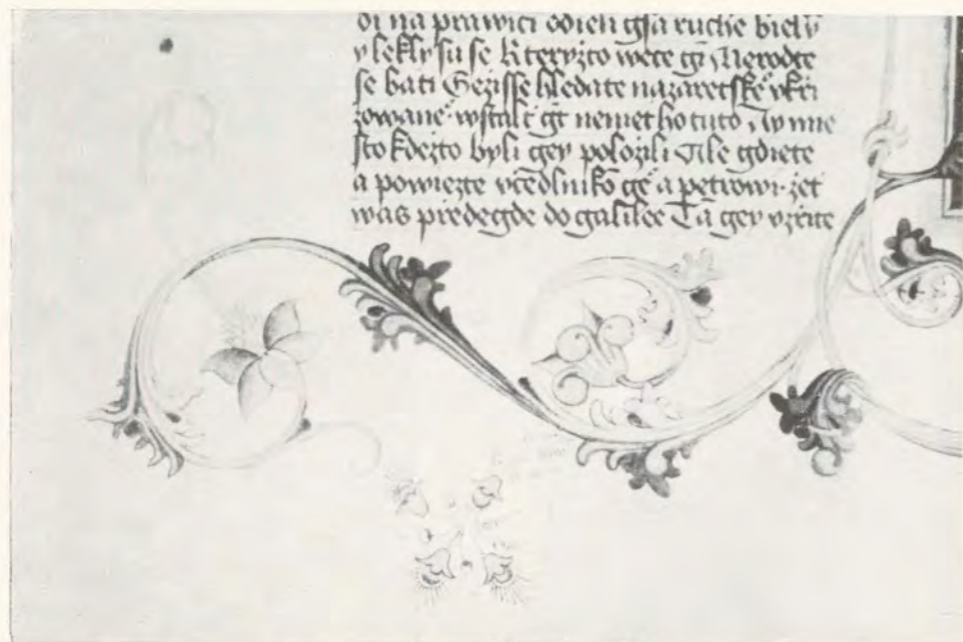 na prawici odieli gsa ruche biely
y lekly su se kteryzto wece gi Nerodte
se bati Gezisse hledate nazaretske vkri
zowane wstalt gt nemet ho tuto Ay mie
sto kdezto byli gey polozili Ale gdiete
a powiezte vcedlniko ge a petrowi zet
was predegde do galilee Ta gey vzrite